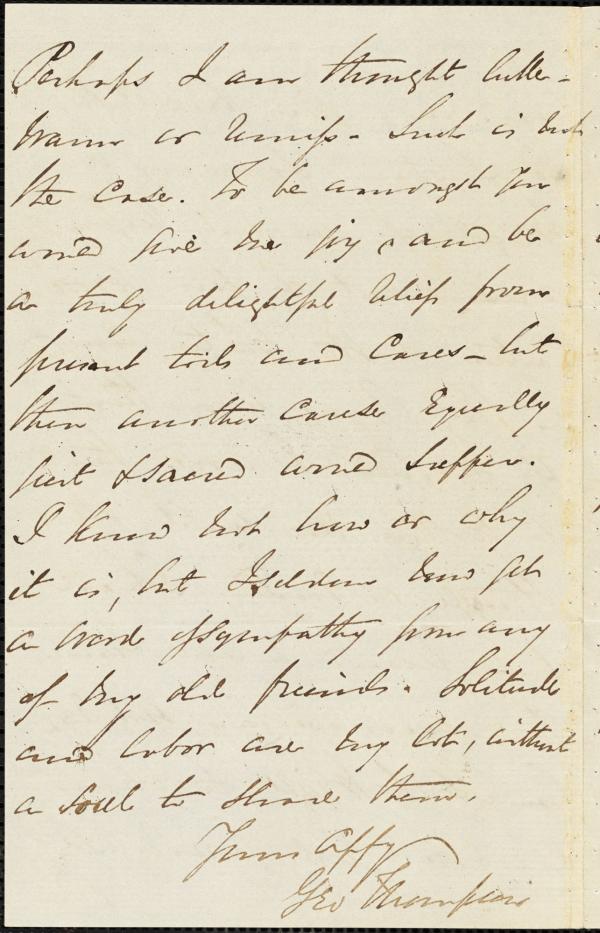 Perhaps I am thought luke-
warm or remiss. Such is not
the case. To be amongst you
would give me joy, and be
a truly delightful relief from
present toils and cares – but
then another cause equally
just & sacred would suffer.
I know not how or why
it is, but I seldom now get
a word of sympathy from any
of my old friends. Solitude
and labor are my lot, without
a soul to share them.
Yours affy
Geo Thompson